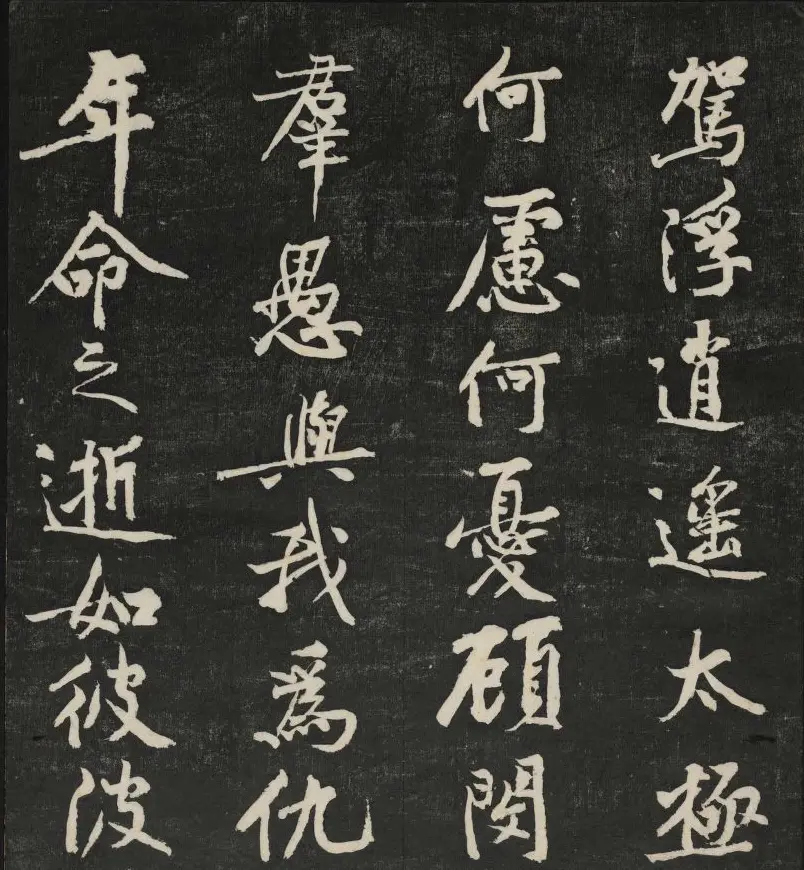 駕浮逍遥太極
何慮何憂顧閔
羣愚與我爲仇
年命之逝如彼波